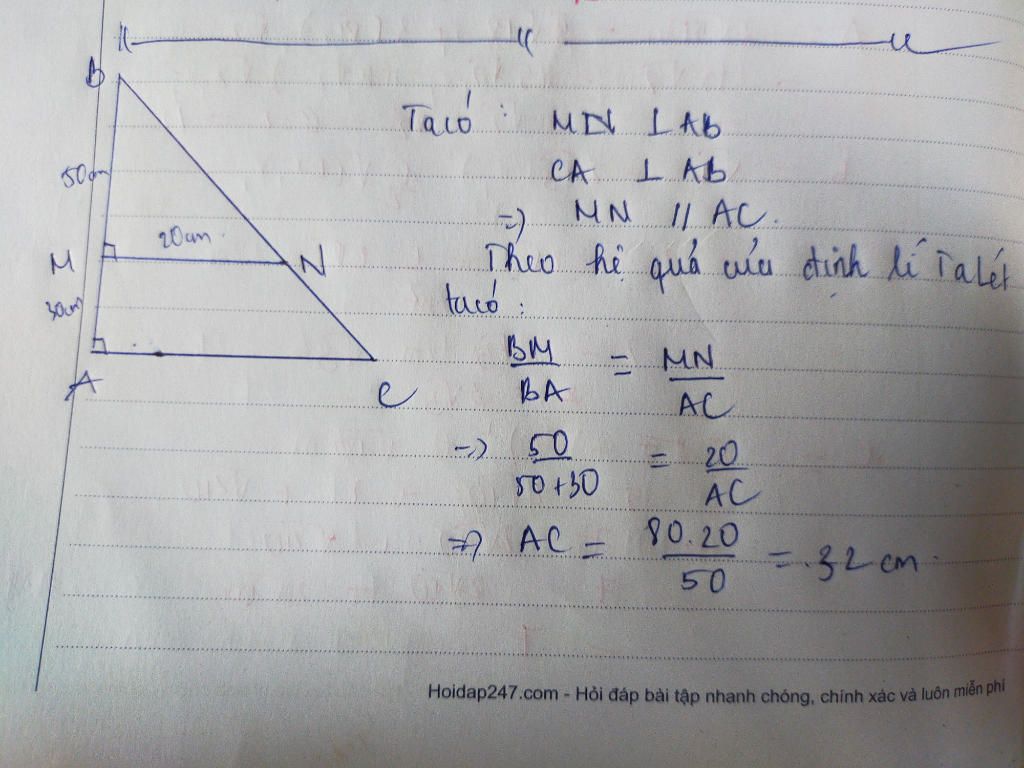 B
50cm
20cm
M
N
30cm
A
C
Ta có : MN ⊥ AB
CA ⊥ AB
=> MN // AC.
Theo hệ quả của định lí Ta lét
ta có :
BM / BA = MN / AC
=> 50 / 50+30 = 20 / AC
=> AC = 80.20 / 50 = 32 cm.
Hoidap247.com - Hỏi đáp bài tập nhanh chóng, chính xác và luôn miễn phí